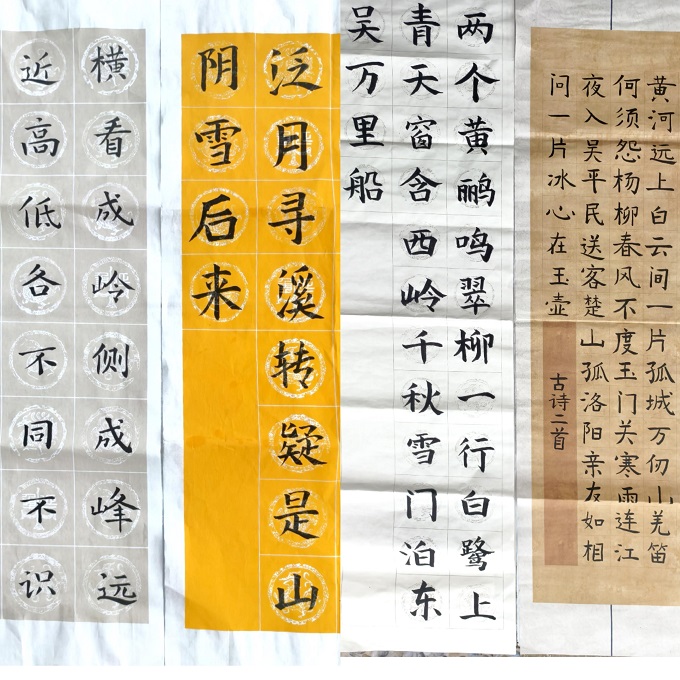 横看成岭侧成峰远
近高低各不同不识
泛月寻溪转疑是山
阴雪后来
两个黄鹂鸣翠柳一行白鹭上
青天窗含西岭千秋雪门泊东
吴万里船
黄河远上白云间一片孤城万仞山羌笛
何须怨杨柳春风不度玉门关寒雨连江
夜入吴平民送客楚山孤洛阳亲友如相
问一片冰心在玉壶
古诗二首